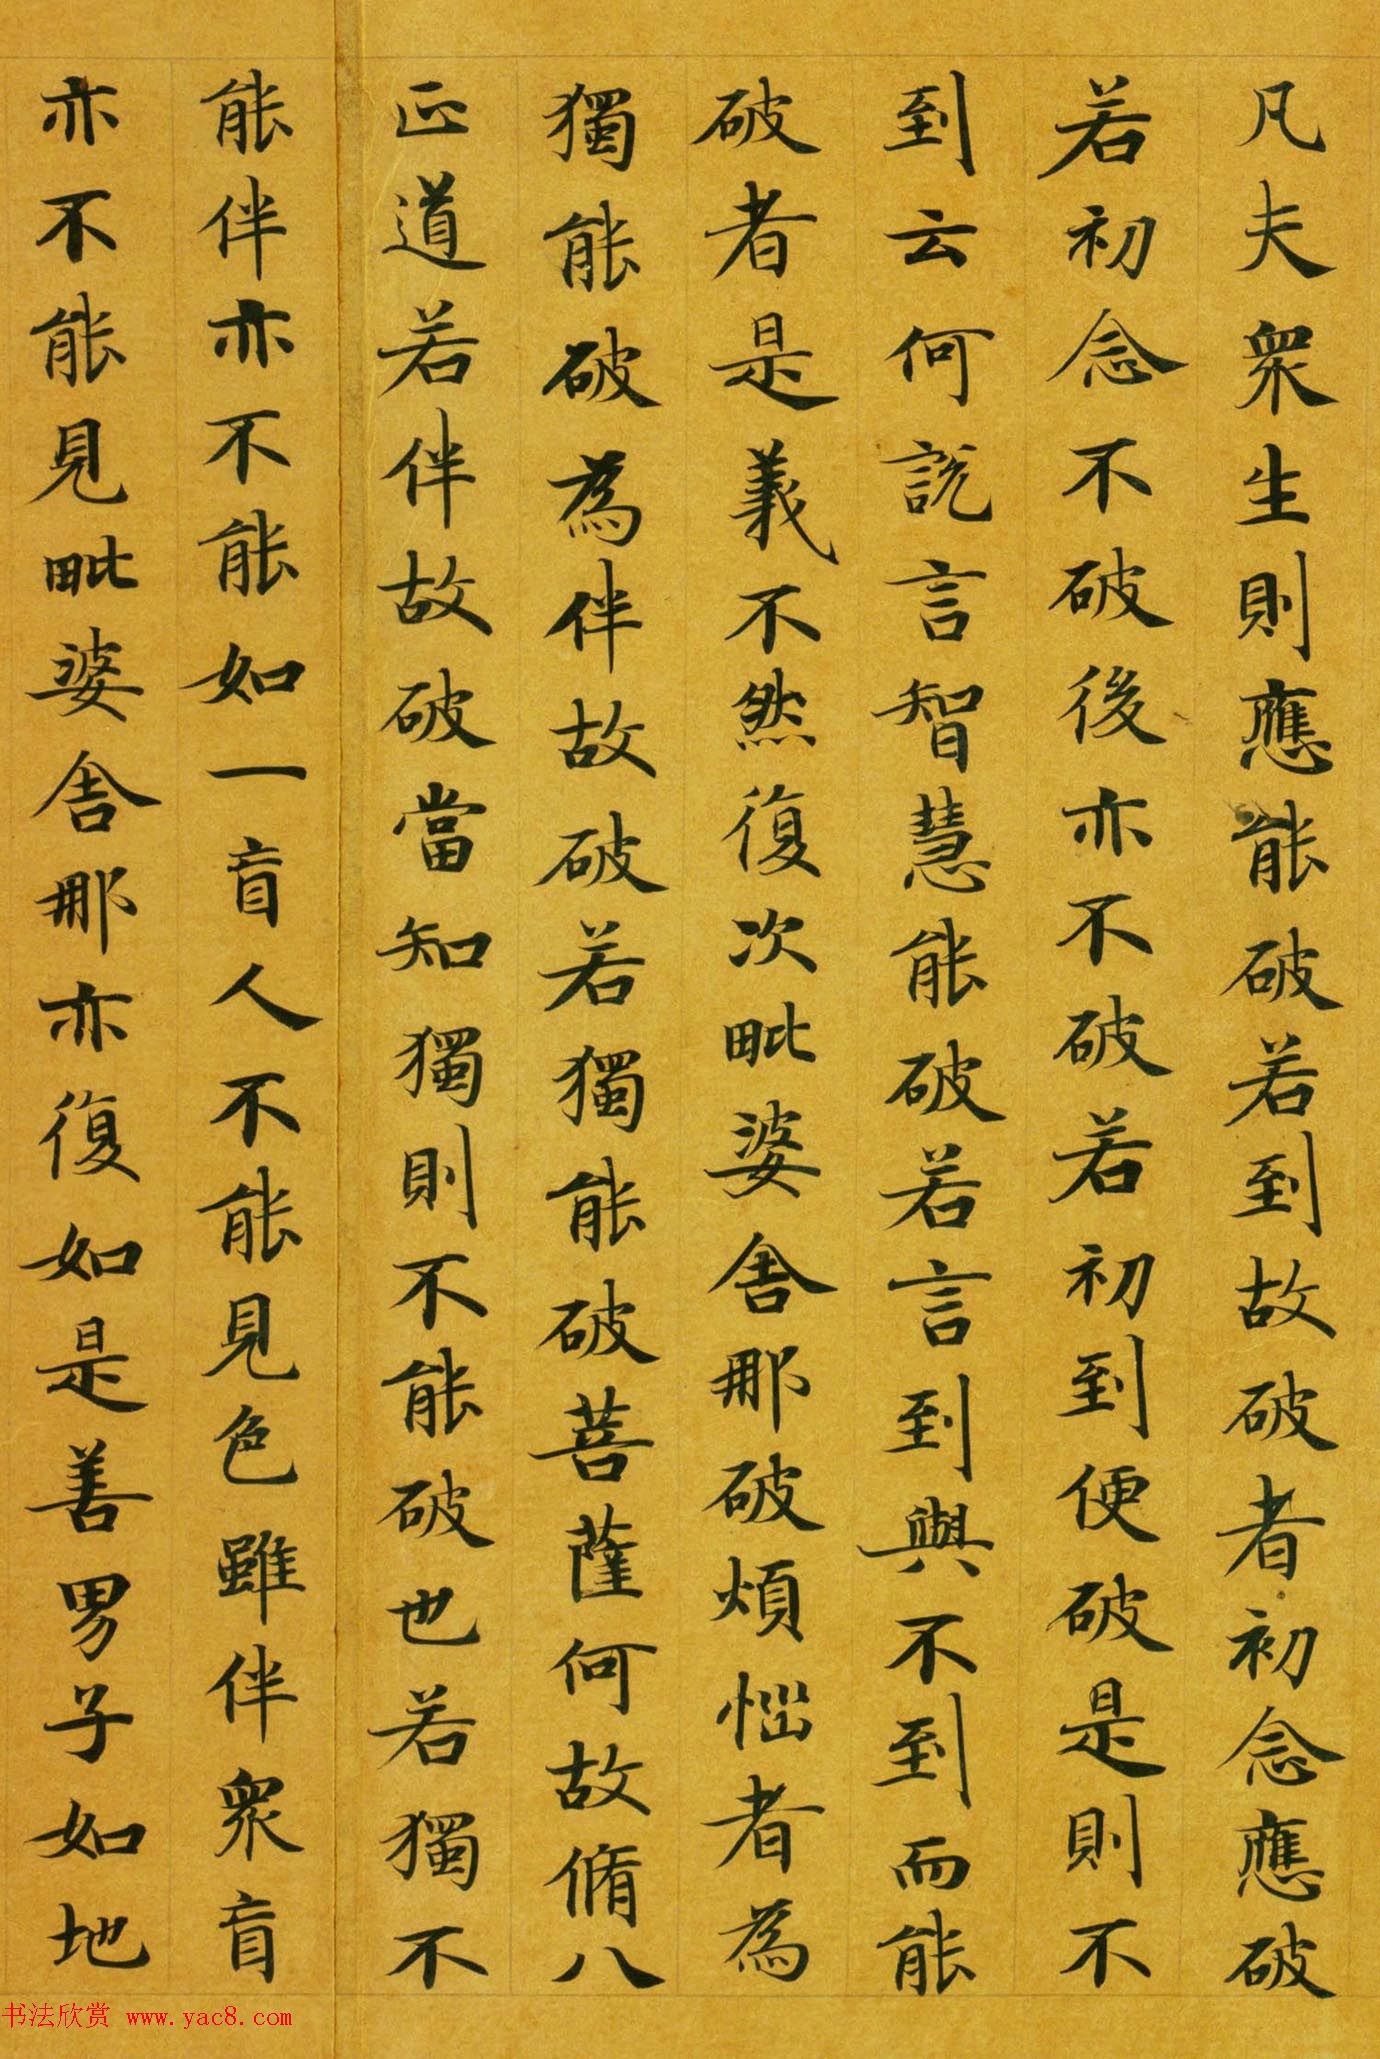 凡夫眾生則應能破若到故破者初念應破
若初念不破後亦不破若初到便破是則不
到云何說言智慧能破若言到與不到而能
破者是義不然復次毗婆舍那破煩惱者為
獨能破為伴故破若獨能破菩薩何故脩八
正道若伴故破當知獨則不能破也若獨不
能伴亦不能如一盲人不能見色雖伴眾盲
亦不能見毗婆舍那亦復如是善男子如地
书法欣赏 www.yac8.com